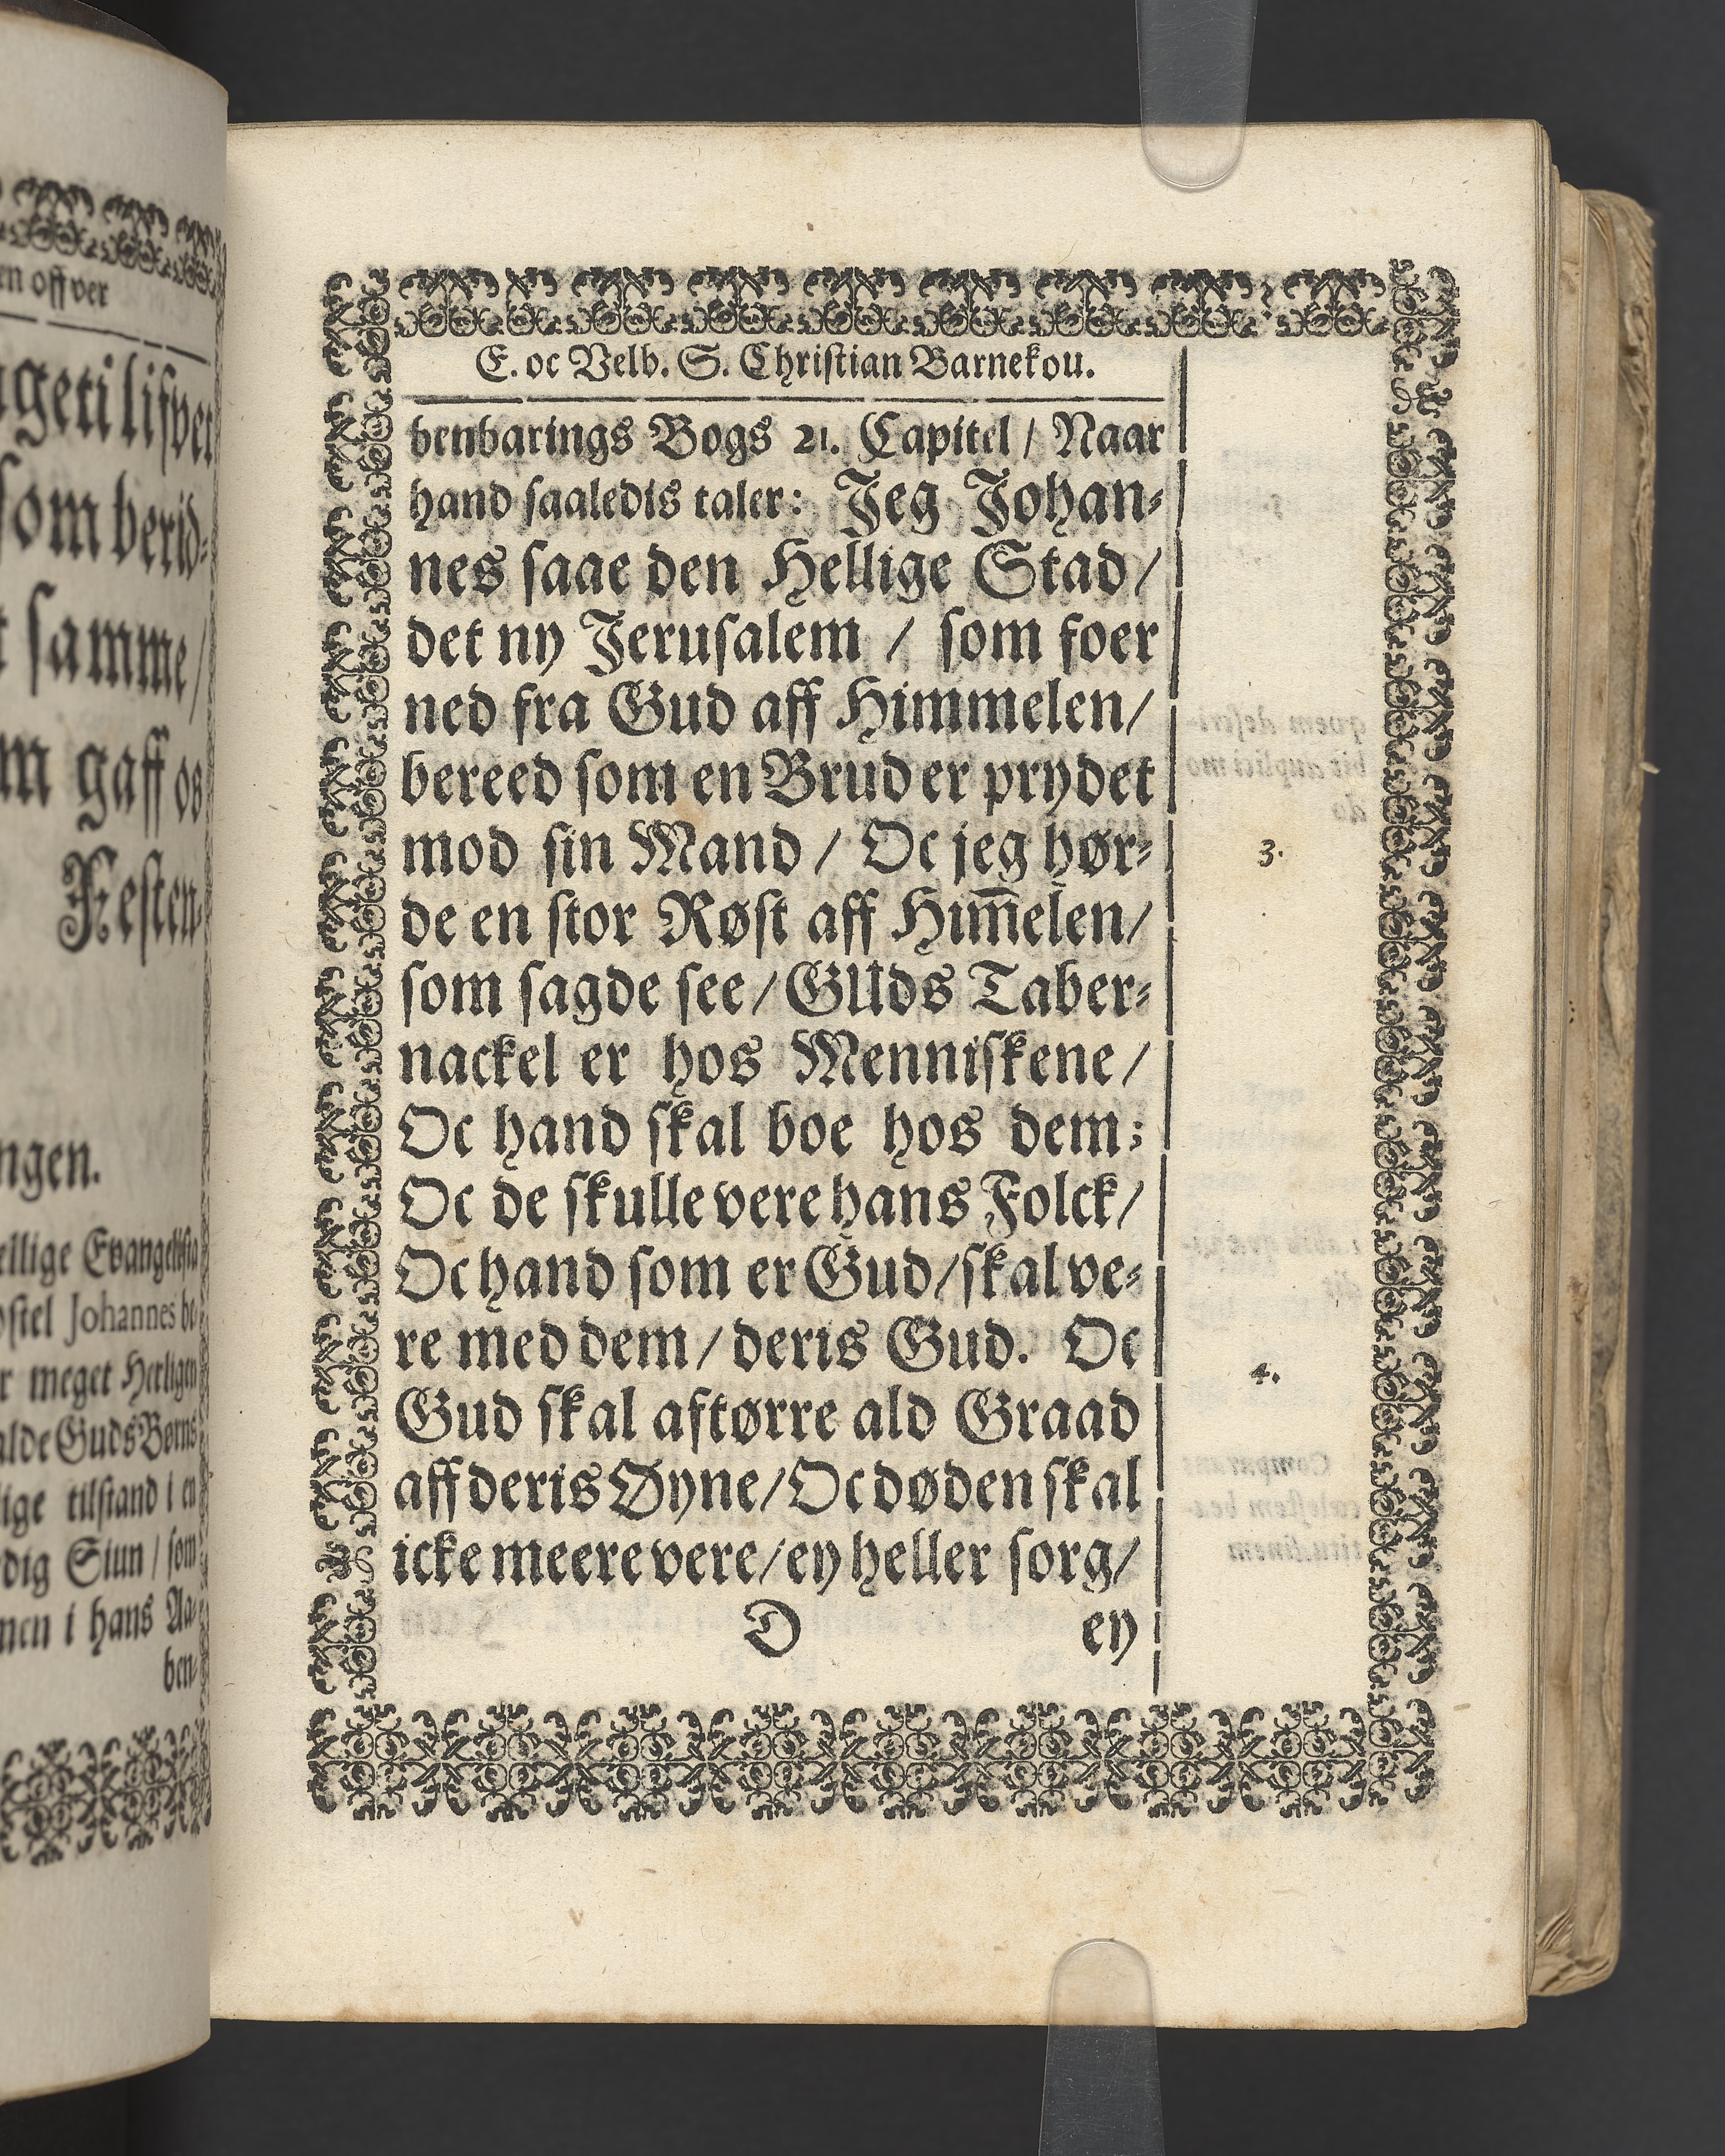 en offver
som berid-
samme/
gaff os
Festen-
ngen.
ellige Evangelista
Johannes be-
meget Herligen
alde Guds Børns
tilstand i en
Siun/ som
i hans Aa-
ben-
E. oc Velb. S. Christian Barnekou.
benbarings Bogs 21. Capitel/ Naar
hand saaledis taler: Jeg Johan-
nes saae den Hellige Stad/
det ny Jerusalem / som foer
ned fra Gud aff Himmelen/
bereed som en Brud er prydet
mod sin Mand / Oc jeg hør-
3.
de en stor Røst aff Him̅elen/
som sagde see/ GUds Taber-
nackel er hos Menniskene/
Oc hand skal boe hos dem;
Oc de skulle vere hans Folck/
Oc hand som er Gud/ skal ve-
re med dem/ deris Gud. Oc
4.
Gud skal aftørre ald Graad
aff deris Øyne/ Oc døden skal
icke meere vere/ ey heller sorg/
D ey